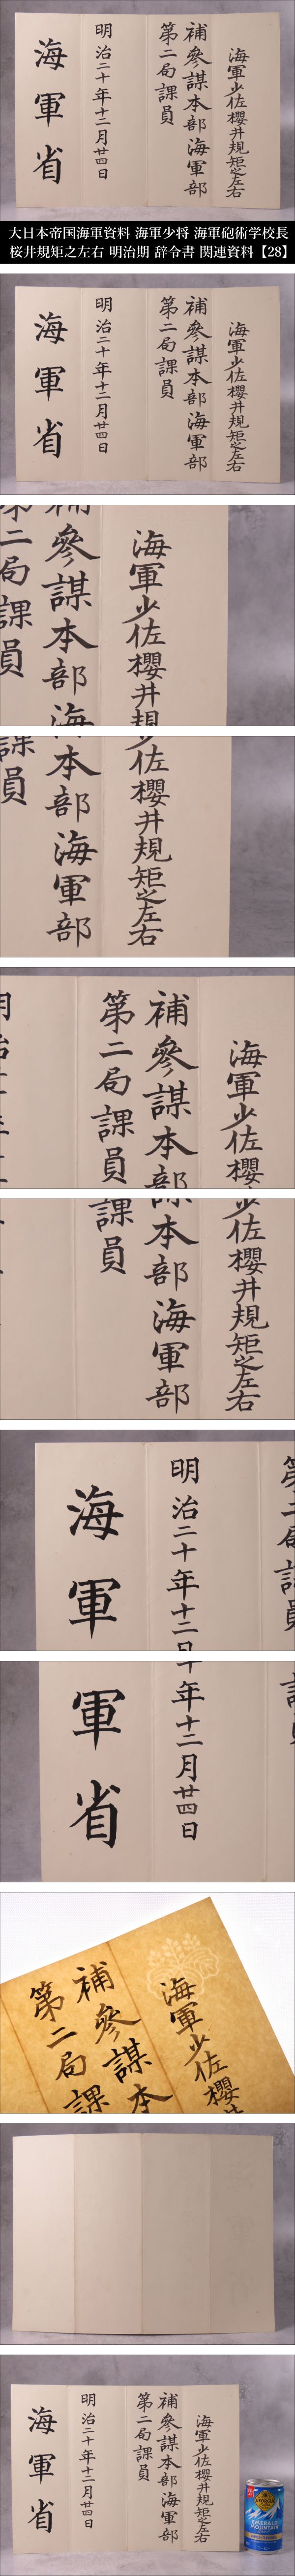 海軍少佐櫻井規矩之左右
補參謀本部海軍部
第二局課員
明治二十年十二月廿四日
海軍省
大日本帝国海軍資料 海軍少将 海軍砲術学校長
桜井規矩之左右 明治期 辞令書 関連資料【28】
海軍少佐櫻井規矩之左右
補參謀本部海軍部
第二局課員
明治二十年十二月廿四日
海軍省
海軍少佐櫻井規
補參謀本部海
第二局課員
少佐櫻井規矩之左右
本部海軍部
課員
海軍少佐櫻
補參謀本部
第二局課員
明治二十
少佐櫻井規矩之左右
本部海軍部
課員
第二局課員
明治二十年十二月
海軍
年十二月廿四日
軍省
海軍少佐櫻井
補參謀本
第二局課
海軍少佐櫻井規矩之左右
補參謀本部海軍部
第二局課員
明治二十年十二月廿四日
海軍省
GEORGIA
EMERALD
MOUNTAIN